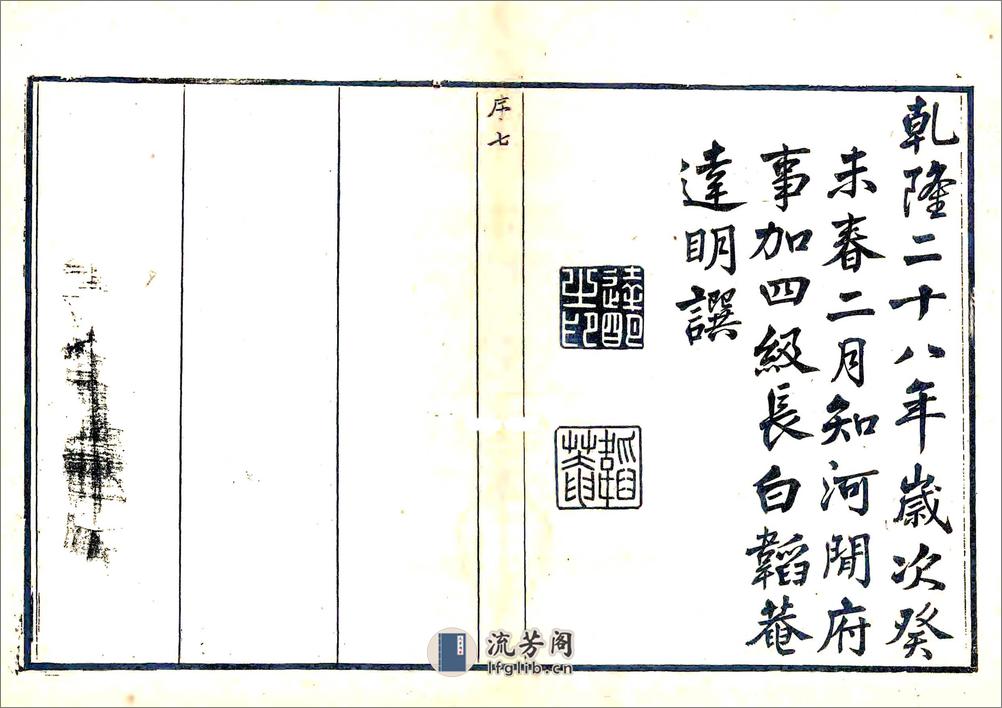 乾隆二十八年歲次癸
未春二月知河閒府
事加四級長白韜菴
達明譔
達明之印
韜菴
序七
流芳阁
lfglib.cn